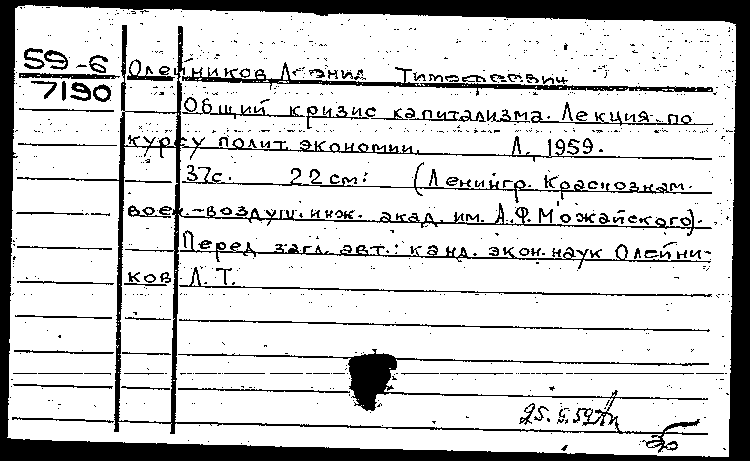 59-6
7190
Олейников, Леонид Тимофеевич
Общий кризис капитализма. Лекция по
курсу полит. экономии. Л., 1959.
37с. 22 см. (Ленингр. Краснознам.
воен.-воздуш. инж. акад. им. А.Ф.Можайского).
Перед загл. авт.: канд. экон. наук Олейни-
ков Л.Т.